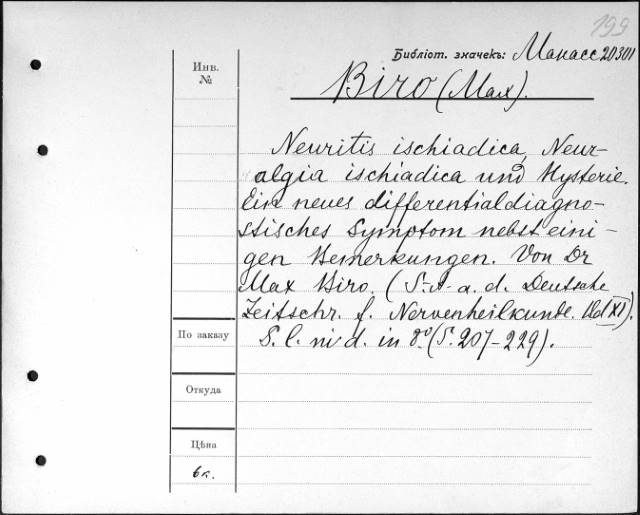 199
Библіот. значекъ: Манасс 20301
Инв.
№
Biro (Max).
Neuritis ischiadica, Neur-
algia ischiadica und Hysterie.
Ein neues differentialdiagno-
stisches Symptom nebst eini-
gen Bemerkungen. Von Dr
Max Biro. (S.-A. a. d. Deutsche
Zeitschr. f. Nervenheilkunde. Bd XI).
S. l. ni d. in 8º. (S. 207-229).
По заказу
Откуда
Цѣна
6к.